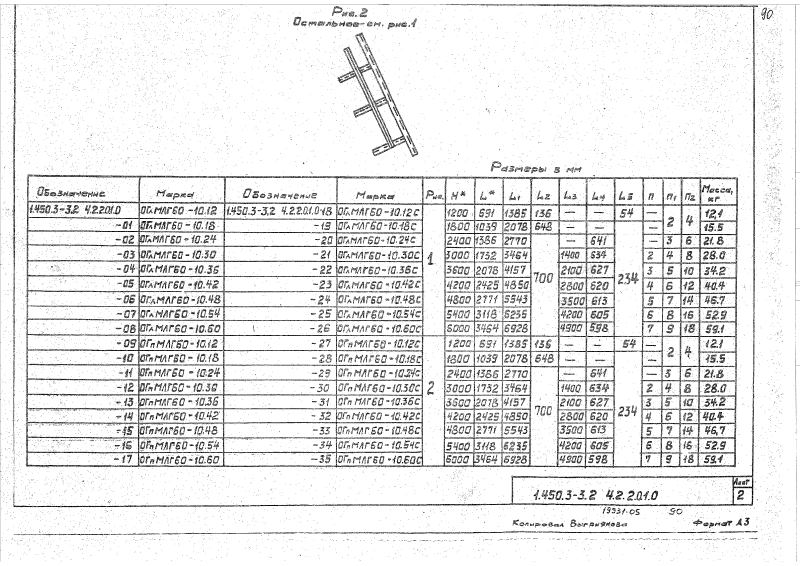 90
Рис. 2
Остальное-см. рис.1
Размеры в мм
Обозначение Марка Обозначение Марка Рис. H* L* L1 L2 L3 L4 L5 п п1 п2 Масса, кг
1.450.3-3.2 4.2.2.01.0 ОГлМЛГ60-10.12 1.450.3-3.2 4.2.2.01.0-18 ОГлМЛГ60-10.12С 1 1200 691 1385 136 — — 54 — 2 4 12,1
-01 ОГлМЛГ60-10.18 -19 ОГлМЛГ60-10.18С 1800 1039 2078 648 — — — 15.5
-02 ОГлМЛГ60-10.24 -20 ОГлМЛГ60-10.24С 2400 1386 2770 700 — 641 234 — 3 6 21.8
-03 ОГлМЛГ60-10.30 -21 ОГлМЛГ60-10.30С 3000 1732 3464 1400 634 2 4 8 28.0
-04 ОГлМЛГ60-10.36 -22 ОГлМЛГ60-10.36С 3600 2078 4157 2100 627 3 5 10 34.2
-05 ОГлМЛГ60-10.42 -23 ОГлМЛГ60-10.42С 4200 2425 4850 2800 620 4 6 12 40.4
-06 ОГлМЛГ60-10.48 -24 ОГлМЛГ60-10.48С 4800 2771 5543 3500 613 5 7 14 46.7
-07 ОГлМЛГ60-10.54 -25 ОГлМЛГ60-10.54С 5400 3118 6235 4200 605 6 8 16 52.9
-08 ОГлМЛГ60-10.60 -26 ОГлМЛГ60-10.60С 6000 3464 6928 4900 598 7 9 18 59.1
-09 ОГпМЛГ60-10.12 -27 ОГпМЛГ60-10.12С 2 1200 691 1385 136 — — 54 — 2 4 12.1
-10 ОГпМЛГ60-10.18 -28 ОГпМЛГ60-10.18С 1800 1039 2078 648 — — — 15.5
-11 ОГпМЛГ60-10.24 -29 ОГпМЛГ60-10.24С 2400 1386 2770 700 — 641 234 — 3 6 21.8
-12 ОГпМЛГ60-10.30 -30 ОГпМЛГ60-10.30С 3000 1732 3464 1400 634 2 4 8 28.0
-13 ОГпМЛГ60-10.36 -31 ОГпМЛГ60-10.36С 3600 2078 4157 2100 627 3 5 10 34.2
-14 ОГпМЛГ60-10.42 -32 ОГпМЛГ60-10.42С 4200 2425 4850 2800 620 4 6 12 40.4
-15 ОГпМЛГ60-10.48 -33 ОГпМЛГ60-10.48С 4800 2771 5543 3500 613 5 7 14 46,7
-16 ОГпМЛГ60-10.54 -34 ОГпМЛГ60-10.54С 5400 3118 6235 4200 605 6 8 16 52.9
-17 ОГпМЛГ60-10.60 -35 ОГпМЛГ60-10.60С 6000 3464 6928 4900 598 7 9 18 59.1
1.450.3-3.2 4.2.2.01.0
Лист
2
19931-05 90
Копировал Формат А3